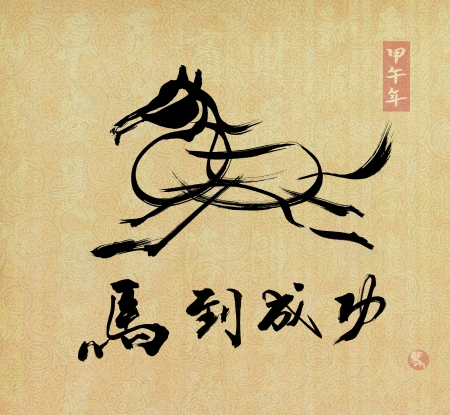 甲午年
馬到成功